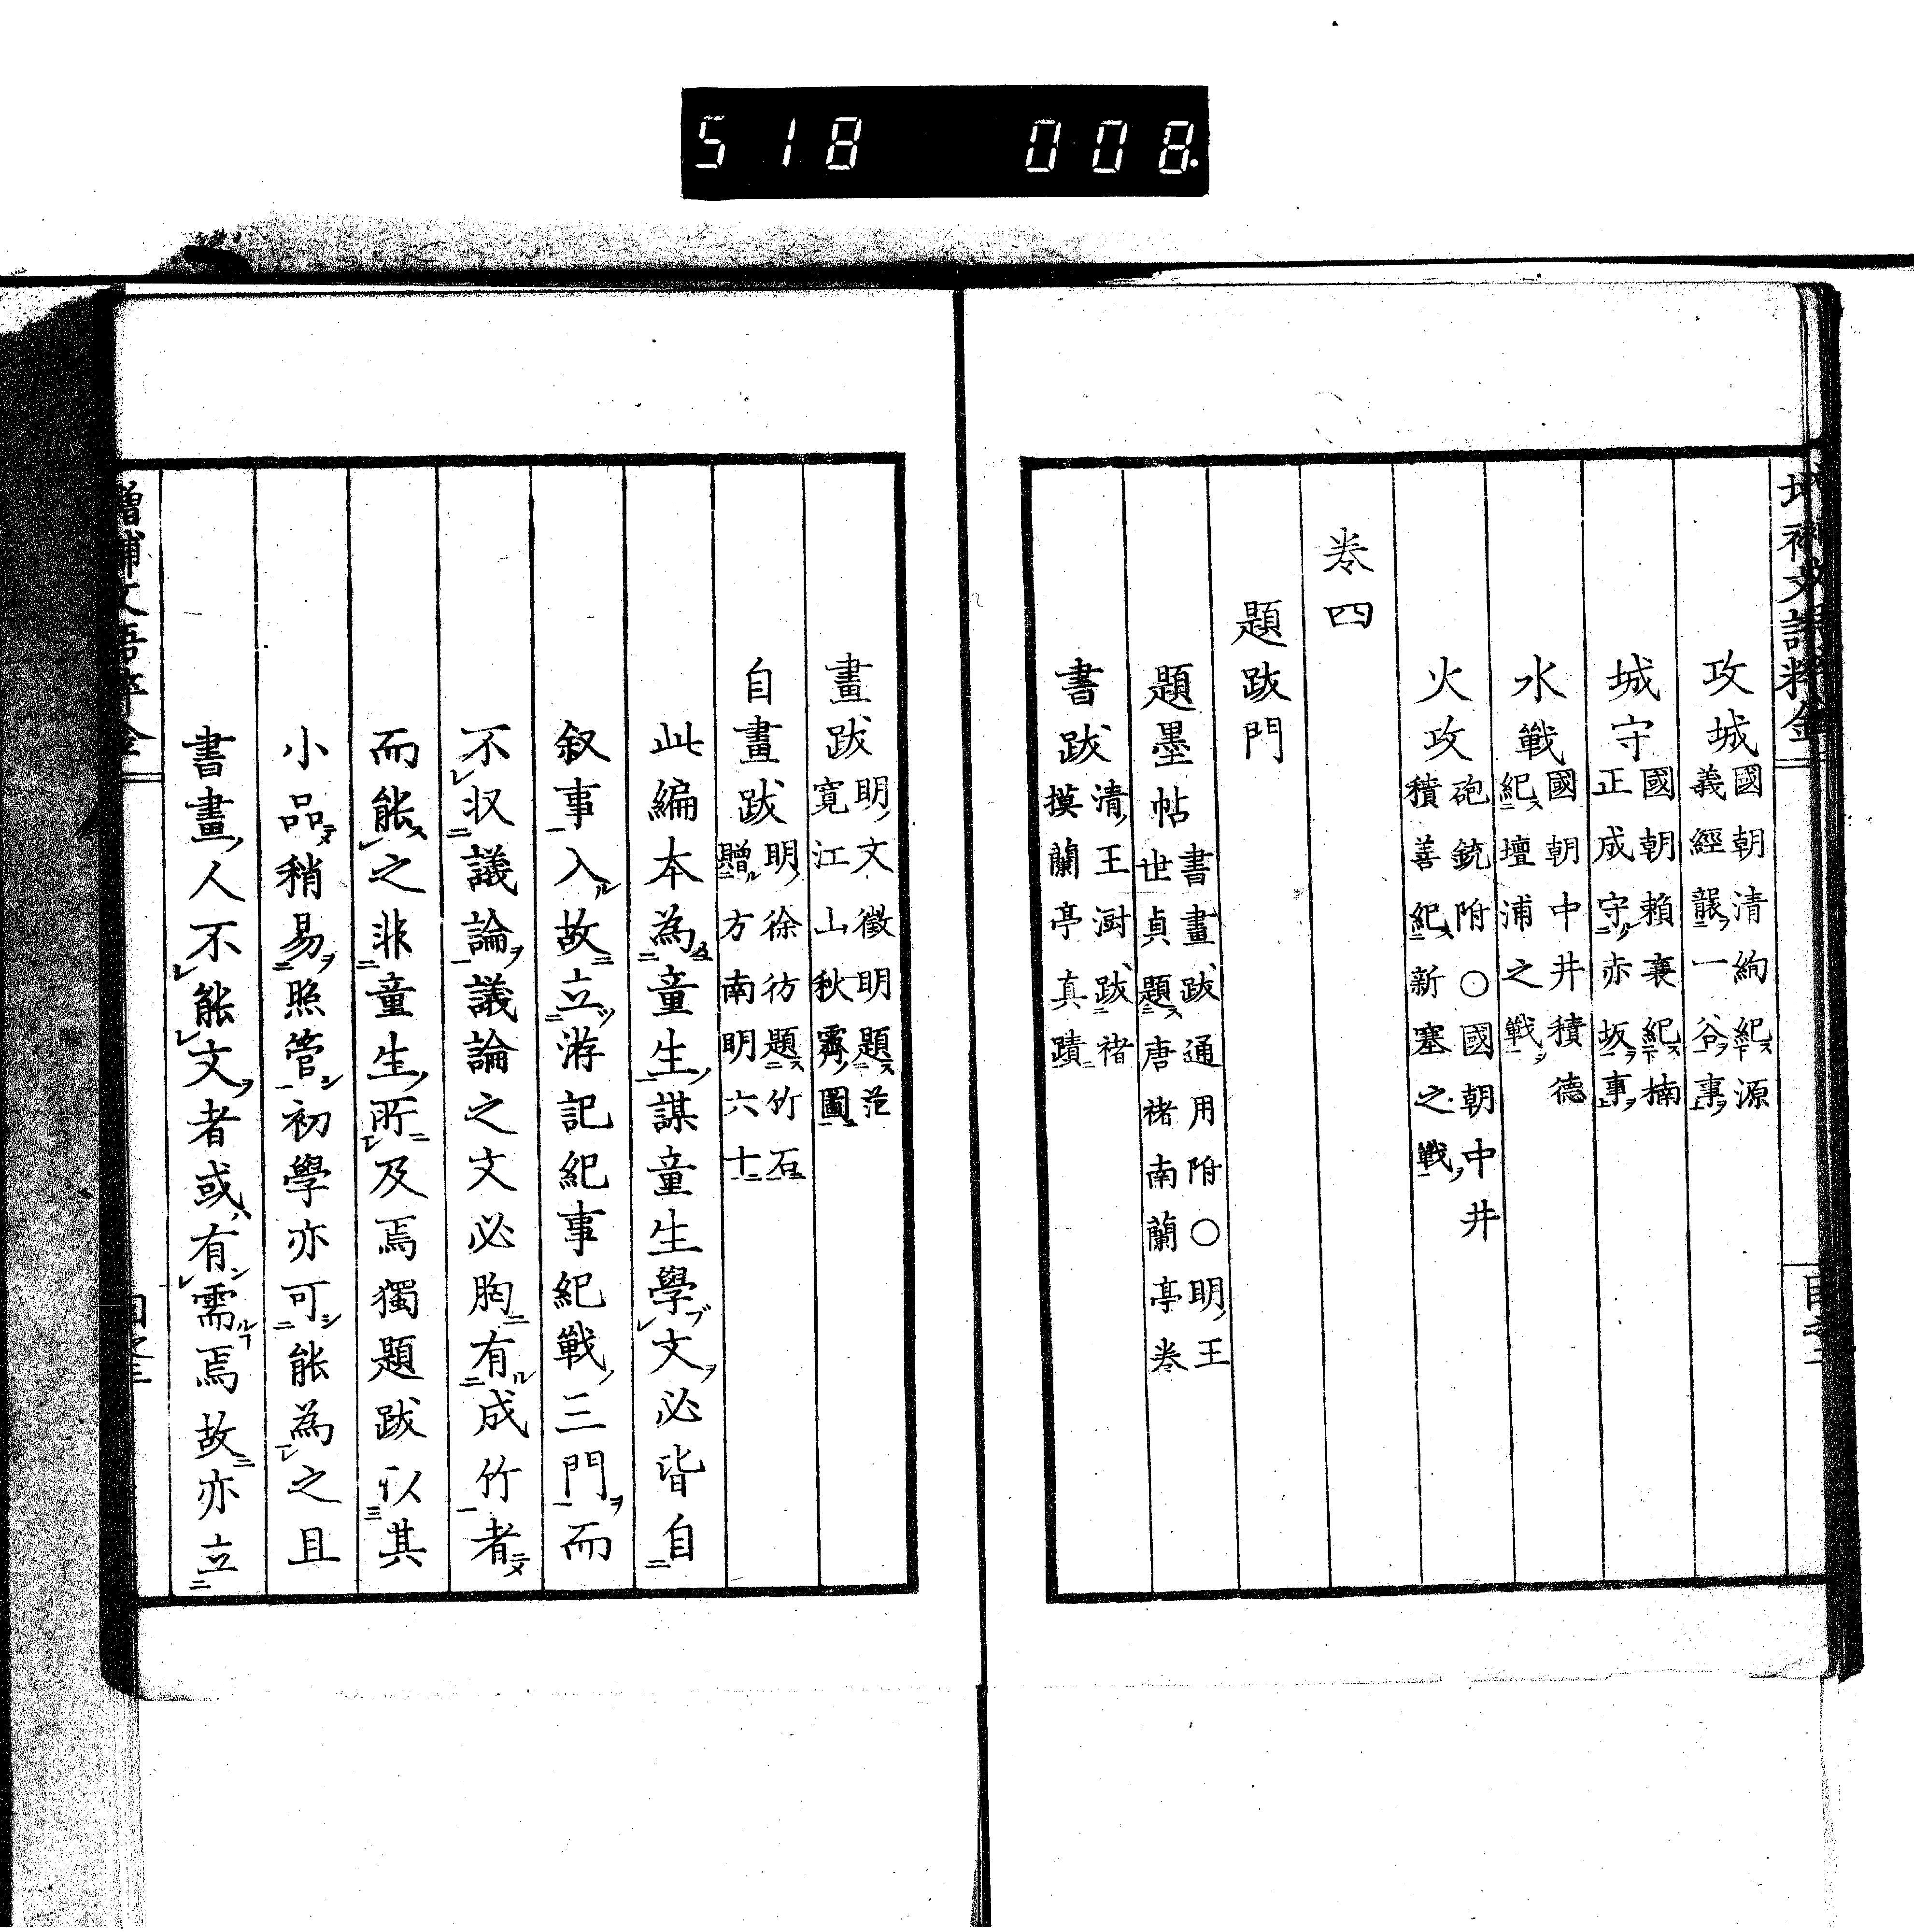 518 008.
増補文語粋金
攻城 國朝清絢紀源
義經襲一谷事
城守 國朝賴襄紀楠
正成守赤坂事
水戰 國朝中井積德
紀壇浦之戰
火攻 砲銃附○國朝中井
積善紀新塞之戰
卷四
題跋門
題墨帖 書畫跋通用附○明王
世貞題唐褚南蘭亭卷
書跋 清王澍跋褚
摸蘭亭真蹟
畫跋 明文徵明題范
寛江山秋霽圖
自畫跋 明徐彷題竹石
贈方南明六十
此編本為童生謀童生學文必皆自
叙事入故立游記紀事紀戰三門而
不収議論議論之文必胸有成竹者
而能之非童生所及焉獨題跋以其
小品稍易照管初學亦可能為之且
書畫人不能文者或有需焉故亦立
増補文語粋金